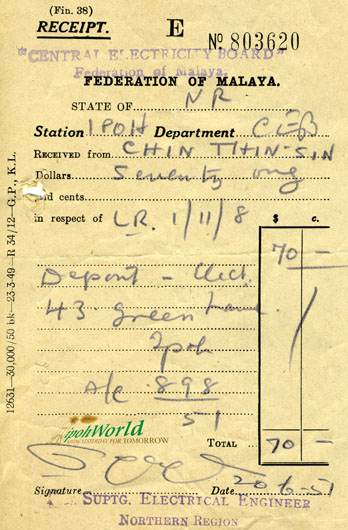 (Fin. 38)
RECEIPT. E
No 803620
"CENTRAL ELECTRICITY BOARD"
Federation of Malaya.
FEDERATION OF MALAYA.
STATE OF NR
Station IPOH Department CEB
RECEIVED from CHIN THIN SIN
Dollars Seventy only
and cents
in respect of LR. 1/11/8 $ c.
70 —
Deposit – Elect.
43 Green
Ipoh
A/c 898
51
ipohWorld
YESTERDAY FOR TOMORROW
TOTAL 70 —
Signature Date 20-6-51
SUPTG. ELECTRICAL ENGINEER
NORTHERN REGION
12631—30,000/50 bk—23-3-49—R 34/12—G.P., K.L.